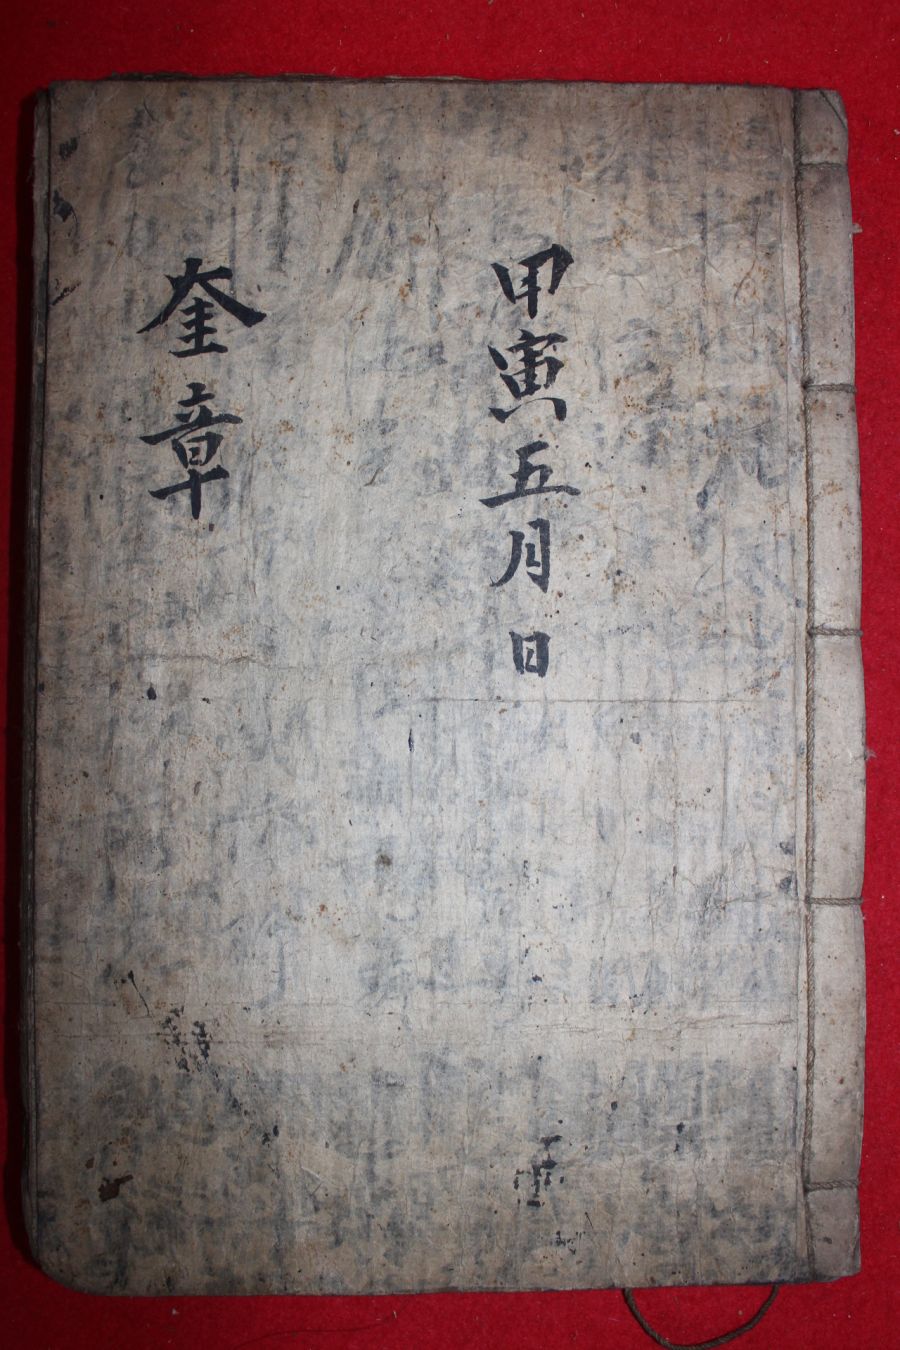 甲寅五月日
奎章